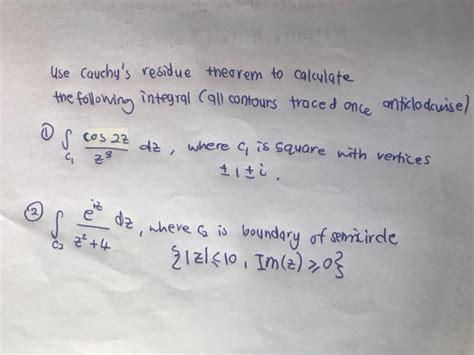 Use Cauchy's residue theorem to calculate
the following integral (all contours traced once anticlockwise)
① ∫_{C₁} cos 2z / z³ dz, where C₁ is square with vertices
±1±i.
② ∫_{C₂} e^{iz} / z²+4 dz, where C₂ is boundary of semicircle
{|z|≤10, Im(z)≥0}